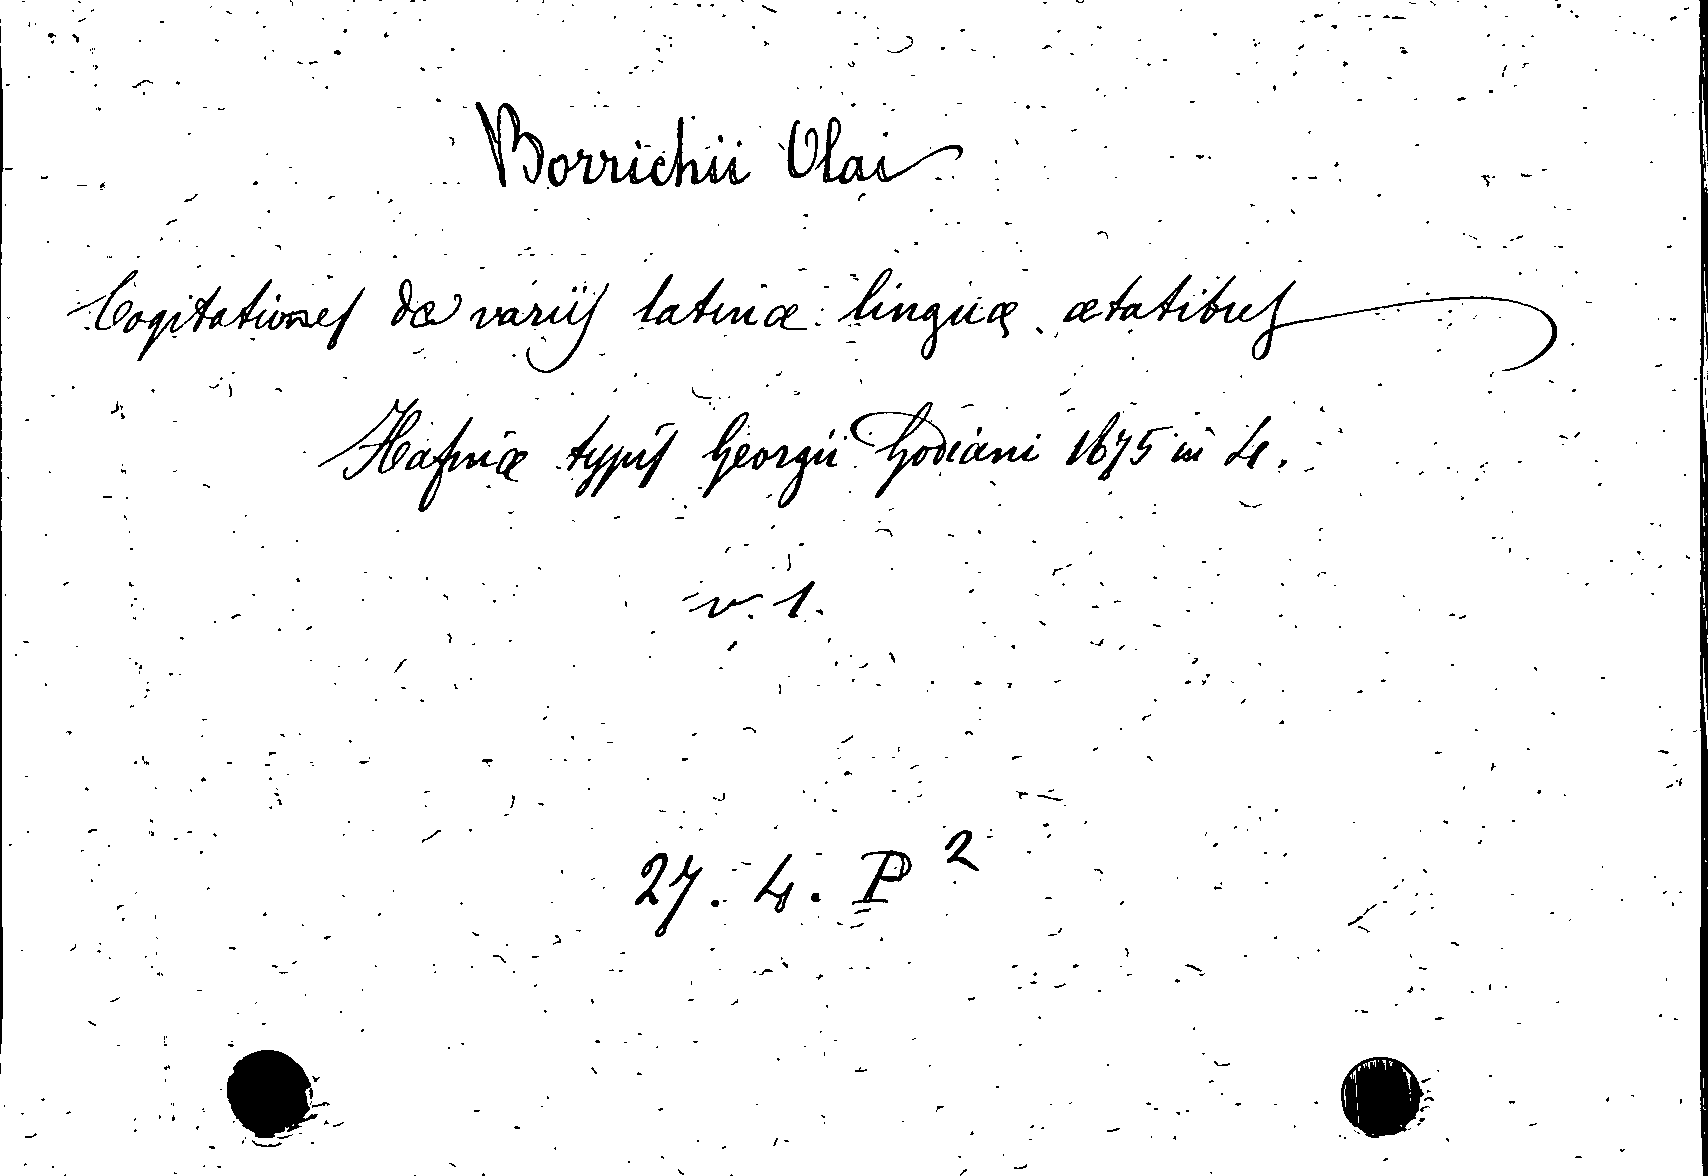 Borrichii Olai
Cogitationes de variis latinæ linguæ ætatibus
Hafniæ typis Georgii Godiani 1675 in 4.
v. 1.
27. 4. P 2